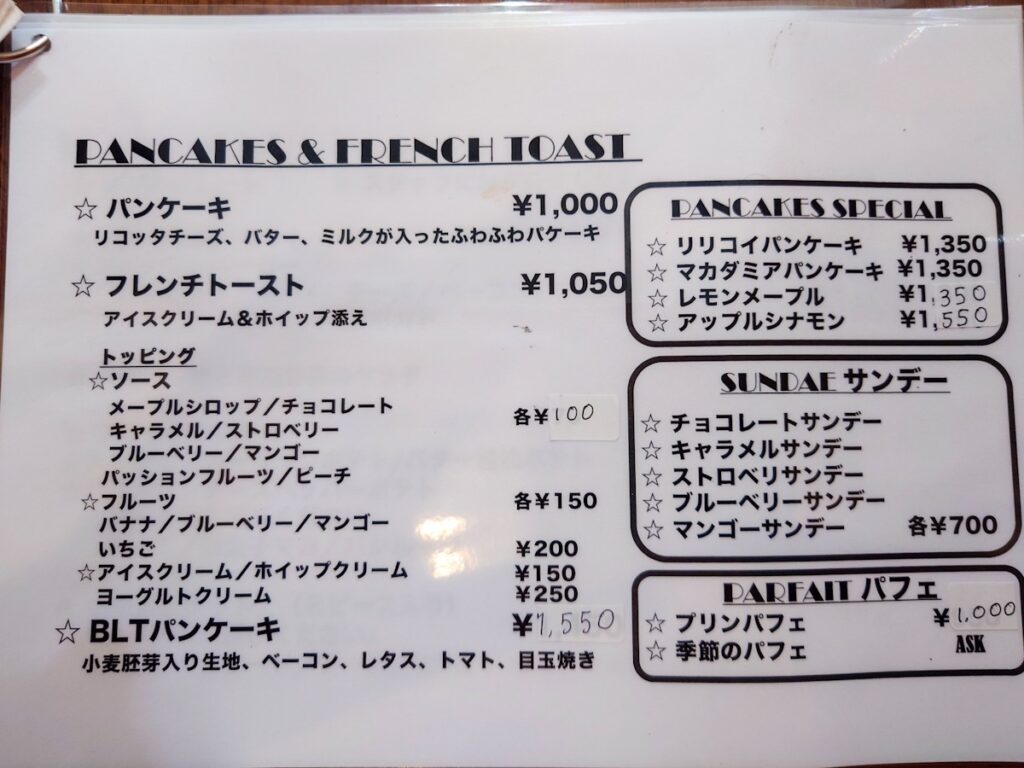 PANCAKES & FRENCH TOAST
☆ パンケーキ ¥1,000
リコッタチーズ、バター、ミルクが入ったふわふわパケーキ
☆ フレンチトースト ¥1,050
アイスクリーム＆ホイップ添え
トッピング
☆ソース
メープルシロップ／チョコレート 各¥100
キャラメル／ストロベリー
ブルーベリー／マンゴー
パッションフルーツ／ピーチ
☆フルーツ 各¥150
バナナ／ブルーベリー／マンゴー
いちご ¥200
☆アイスクリーム／ホイップクリーム ¥150
ヨーグルトクリーム ¥250
☆ BLTパンケーキ ¥1,550
小麦胚芽入り生地、ベーコン、レタス、トマト、目玉焼き
PANCAKES SPECIAL
☆ リリコイパンケーキ ¥1,350
☆ マカダミアパンケーキ ¥1,350
☆ レモンメープル ¥1,350
☆ アップルシナモン ¥1,550
SUNDAE サンデー
☆ チョコレートサンデー
☆ キャラメルサンデー
☆ ストロベリサンデー
☆ ブルーベリーサンデー
☆ マンゴーサンデー 各¥700
PARFAIT パフェ
☆ プリンパフェ ¥1,000
☆ 季節のパフェ ASK